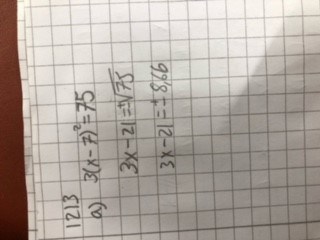 1213
a) 3(x-7)²=75
3x-21=±√75
3x-21=±8,66